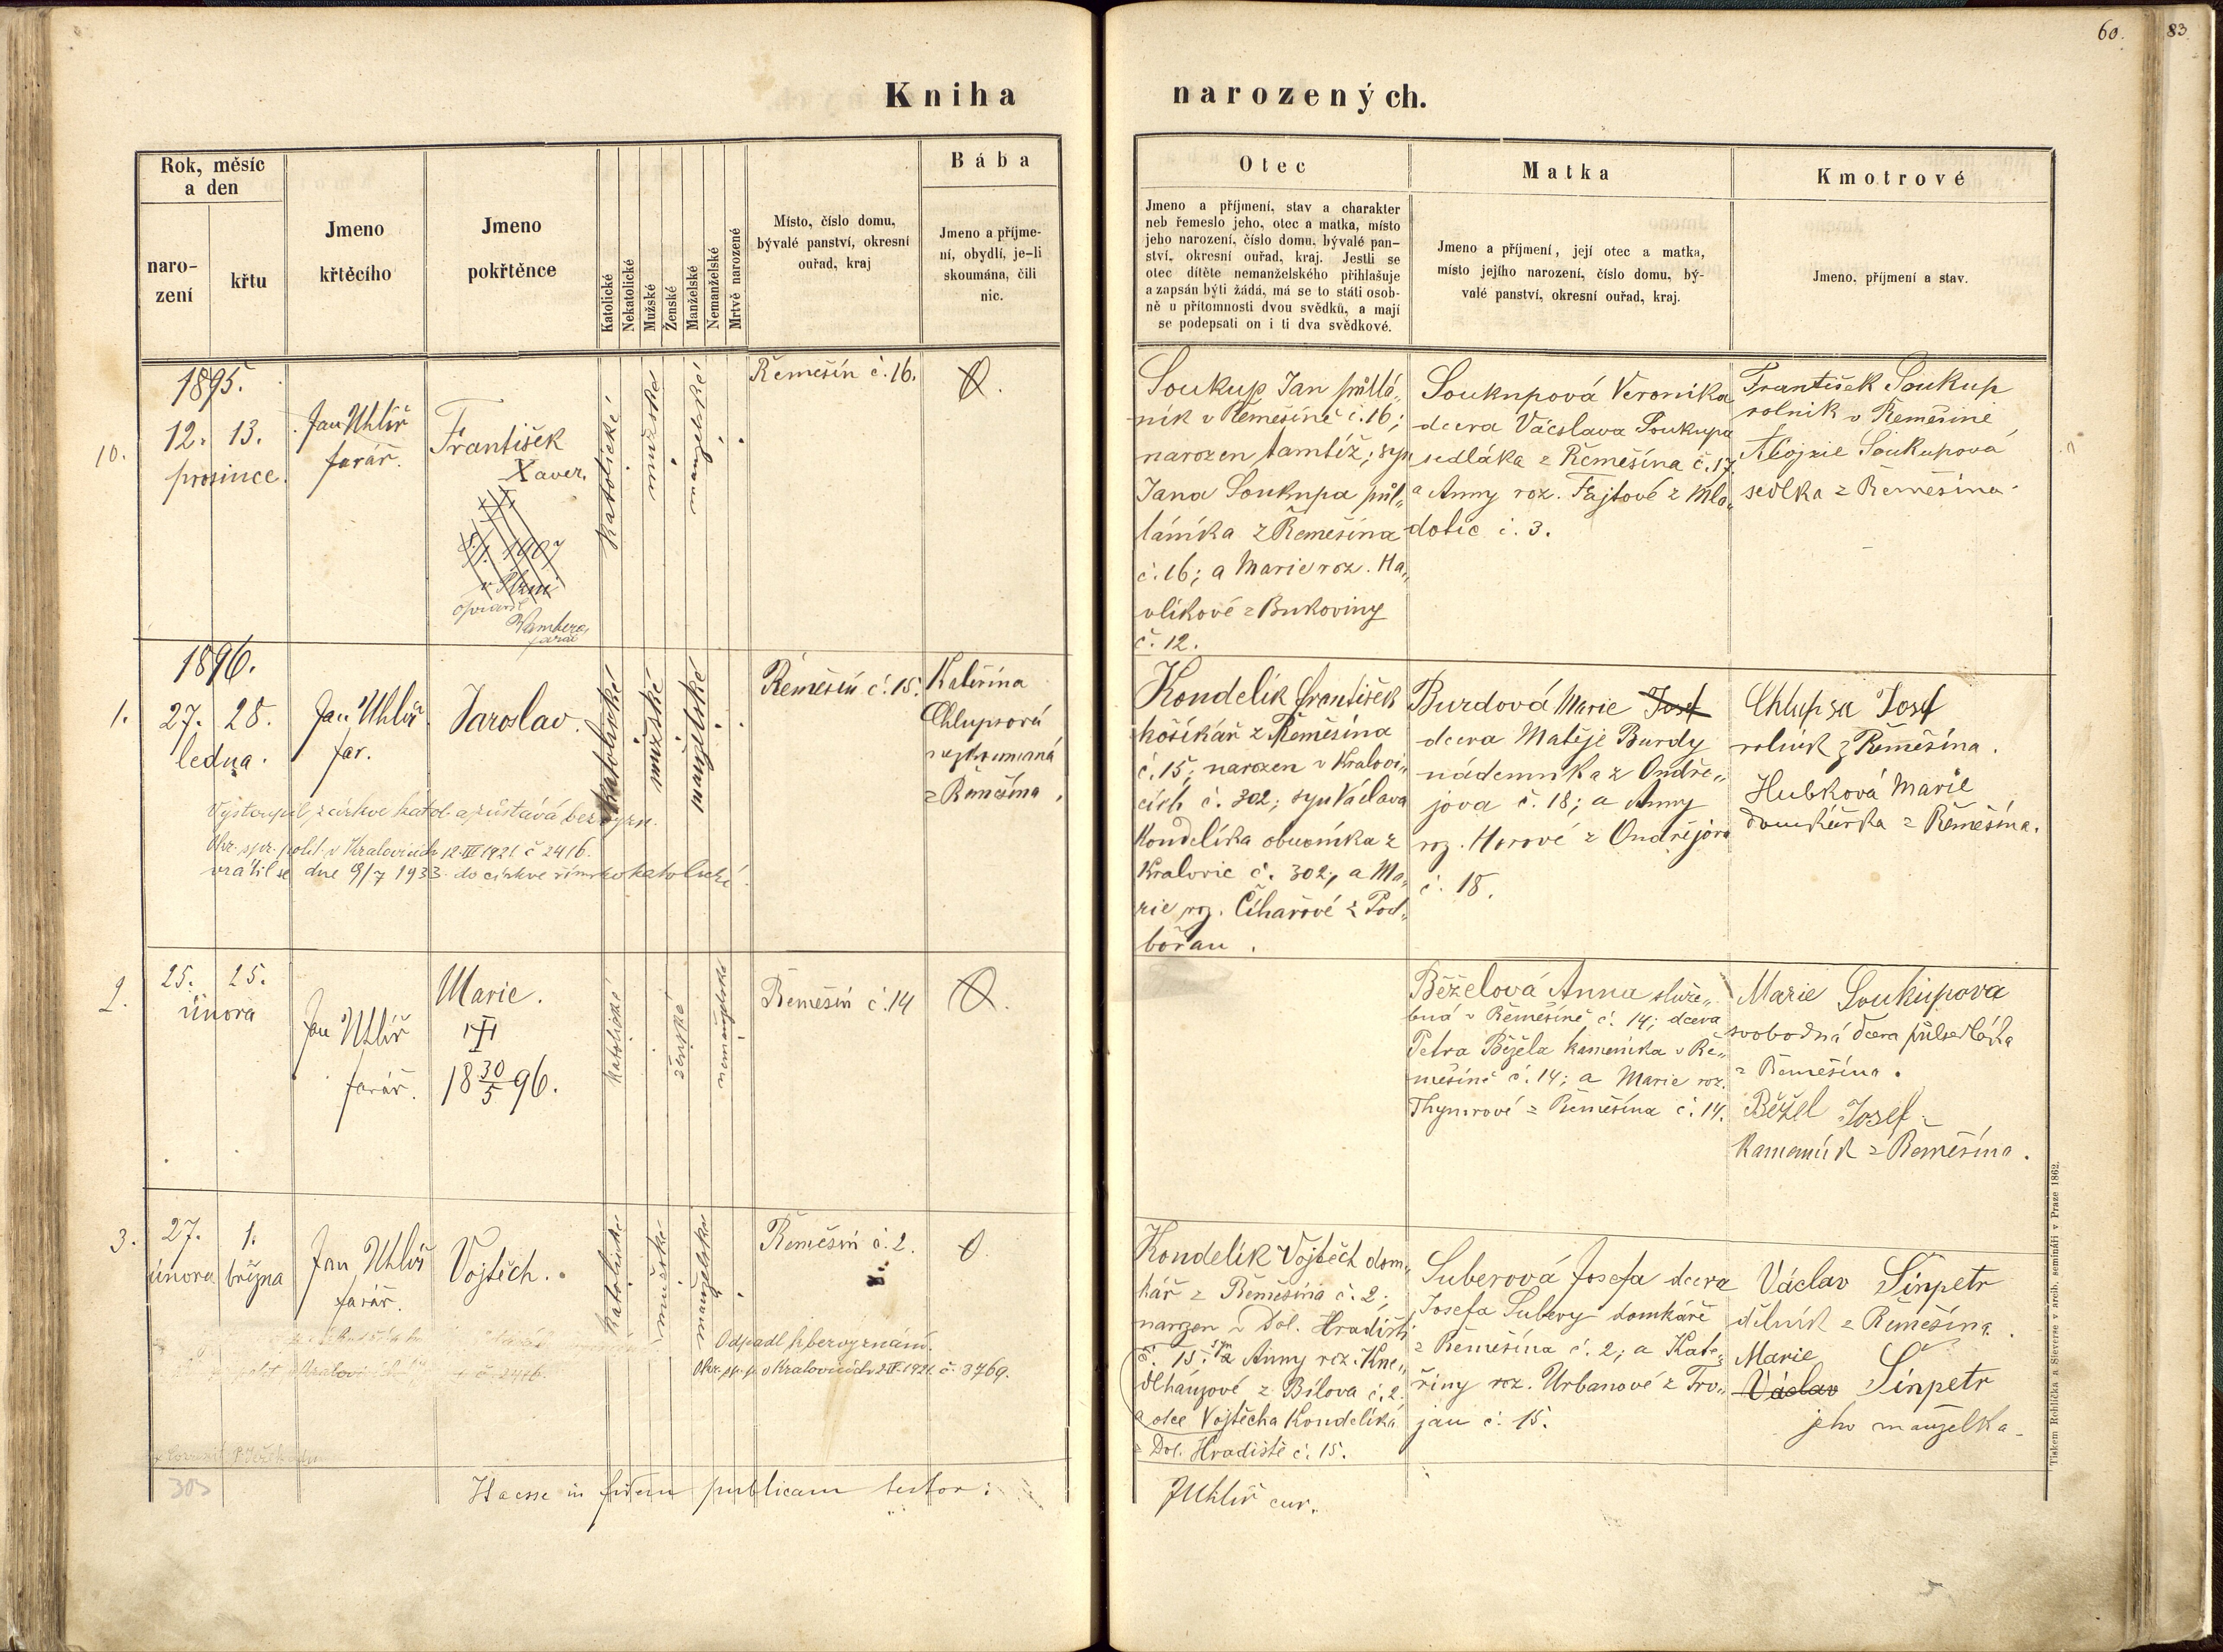 60.
83
Kniha narozených.
Rok, měsíc
a den
naro-
zení
křtu
Jmeno
křtěcího
Jmeno
pokřtěnce
Katolické
Nekatolické
Mužské
Ženské
Manželské
Nemanželské
Mrtvě narozené
Místo, číslo domu,
bývalé panství, okresní
ouřad, kraj
Bába
Jmeno a příjme-
ní, obydlí, je-li
skoumána, čili
nic.
Otec
Jmeno a příjmení, stav a charakter
neb řemeslo jeho, otec a matka, místo
jeho narození, číslo domu, bývalé pan-
ství, okresní ouřad, kraj. Jestli se
otec dítěte nemanželského přihlašuje
a zapsán býti žádá, má se to státi osob-
ně u přítomnosti dvou svědků, a mají
se podepsati on i ti dva svědkové.
Matka
Jmeno a příjmení, její otec a matka,
místo jejího narození, číslo domu, bý-
valé panství, okresní ouřad, kraj.
Kmotrové
Jmeno, příjmení a stav.
10.
1895.
12. 13.
prosince.
Jan Uhlíř
farář.
František
Xaver.
8./1. 1907
v Plzni
farář
katolické
mužské
manželské
Řemešín č. 16.
Soukup Jan půllá„
ník v Řemešíně č. 16;
narozen tamtéž; syn
Jana Soukupa půl„
láníka z Řemešína
č. 16; a Marie roz. Ha„
vlíkové z Bukoviny
č. 12.
Soukupová Veronika
dcera Václava Soukupa
sedláka z Řemešína č. 17.
a Anny roz. Fajtové z Mla„
dotic č. 3.
František Soukup
rolník v Řemešíně
Aloisie Soukupová
sedlka z Řemešína
1.
1896.
27. 28.
ledna.
Jan Uhlíř
far.
Jaroslav.
katolické
mužské
manželské
Řemešín č. 15.
Kateřina
Chlupsová
z Řemešína.
Vystoupil z církve katol. a zůstává bez vyzn.
Okr. spr. polit. v Kralovicích 12.III 1921. č 2416.
vrátil se dne 9/7 1933 do církve římskokatolické.
Kondelík František
košíkář z Řemešína
č. 15; narozen v Kralovi„
cích č. 302; syn Václava
Kondelíka obuvníka z
Kralovic č. 302; a Ma„
rie roz. Cihařové z Pod„
bořan.
Burdová Marie Josef
dcera Matěje Burdy
nádenníka z Ondře„
jova č. 18; a Anny
roz. Horové z Ondřejova
č. 18.
Chlupsa Josef
rolník z Řemešína.
Hubková Marie
domkářka z Řemešína.
2.
25. 25.
února
Jan Uhlíř
farář.
Marie.
18 30/5 96.
katolické
ženské
nemanželské
Řemešín č. 14
Běželová Anna služe„
bná v Řemešíně č. 14; dcera
Petra Běžela kameníka v Ře„
mešíně č. 14; a Marie roz.
Thymrové z Řemešína č. 14.
Marie Soukupová
svobodná dcera půlsedláka
z Řemešína.
Běžel Josef
kameník z Řemešína.
3.
27. 1.
února března
Jan Uhlíř
farář.
Vojtěch.
katolické
mužské
manželské
Řemešín č. 2.
Odpadl k bezvyznání.
Okr. sp. p. v Kralovicích 1921. č. 3769.
Kondelík Vojtěch dom„
kář z Řemešína č. 2;
narozen v Dol. Hradišti
č. 15; syn Anny roz. Kne„
dlhánzové z Bílova č. 2.
a otce Vojtěcha Kondelíka
z Dol. Hradiště č. 15.
Suberová Josefa dcera
Josefa Subery domkáře
z Řemešína č. 2; a Kate„
řiny roz. Urbanové z Tro„
jan č. 15.
Václav Sinpetr
dělník z Řemešína.
Marie
Václav Sinpetr
jeho manželka.
303
Haecce in fidem publicam testor:
JUhlíř cur.
Tiskem Rohlíčka a Sieverse v arcib. semináři v Praze 1862.